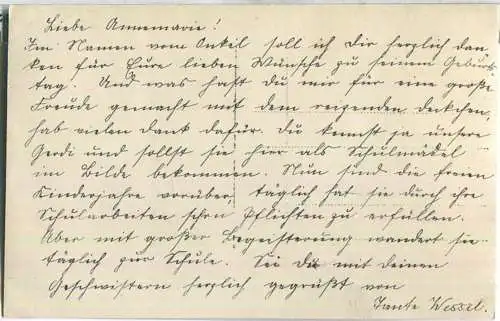 Liebe Annemarie!
Im Namen vom Onkel soll ich Dir herzlich dan
ken für Eure lieben Wünsche zu seinem Geburts
tag. Und was hast Du mir für eine große
Freude gemacht mit dem reizenden Deckchen,
hab vielen Dank dafür. Du kennst ja unsere
Gerdi und sollst sie hier als Schulmädel
im Bilde bekommen. Nun sind die freien
Kinderjahre vorüber, täglich hat sie durch ihre
Schularbeiten schon Pflichten zu erfüllen.
Aber mit großer Begeisterung wandert sie
täglich zur Schule. Sei Du mit deinen
Geschwistern herzlich gegrüßt von
Tante Wessel.